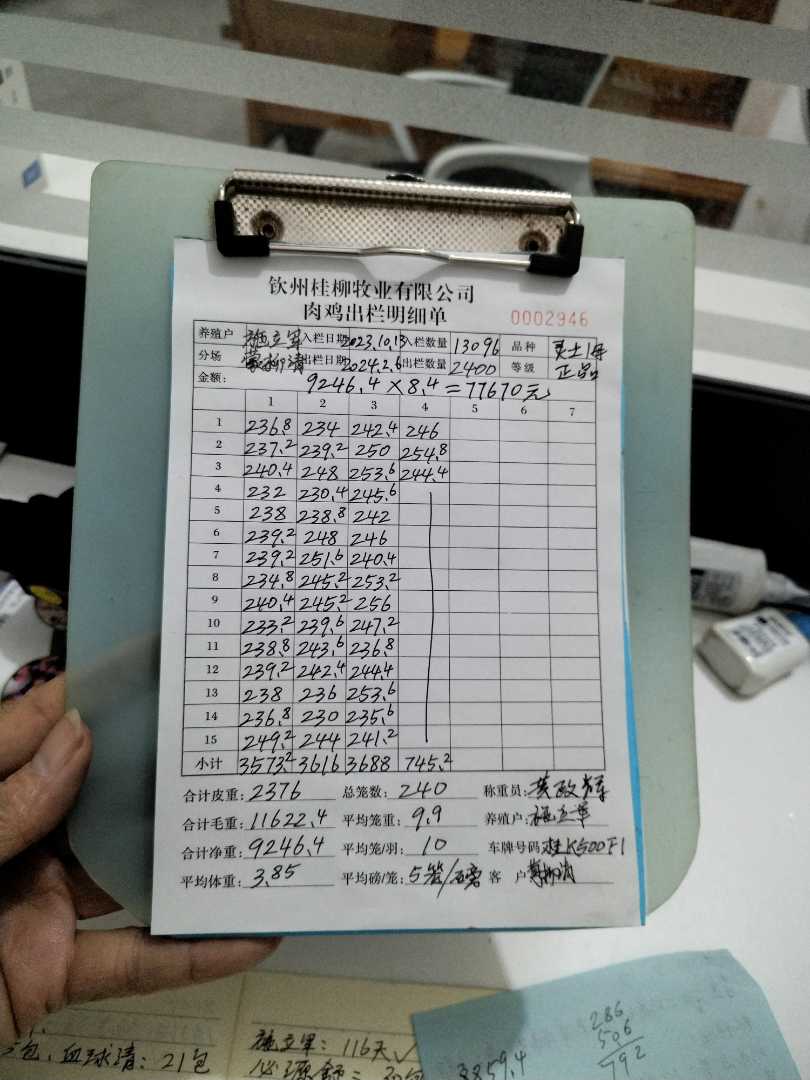 钦州桂柳牧业有限公司
肉鸡出栏明细单
0002946
养殖户 施立军 入栏日期 2023.10.13 入栏数量 13096 品种 灵土1号
分场 出栏日期 2024.2.6 出栏数量 2400 等级 正品
金额: 9246.4×8.4=77670元
1 2 3 4 5 6 7
1 236.8 234 242.4 246
2 237.2 239.2 250 254.8
3 240.4 248 253.6 244.4
4 232 230.4 245.6
5 238 238.8 242
6 239.2 248 246
7 239.2 251.6 240.4
8 234.8 245.2 253.2
9 240.4 245.2 256
10 233.2 239.6 247.2
11 238.8 243.6 236.8
12 239.2 242.4 244.4
13 238 236 253.6
14 236.8 230 235.6
15 249.2 244 241.2
小计 3573.2 3616 3688 745.2
合计皮重: 2376 总笼数: 240 称重员:
合计毛重: 11622.4 平均笼重: 9.9 养殖户: 施立军
合计净重: 9246.4 平均笼/羽: 10 车牌号码 桂K500F1
平均体重: 3.85 平均磅/笼: 5笼/磅 客户
包, 血球清: 21包
施立军: 116天✓
3859.4
286
506
792